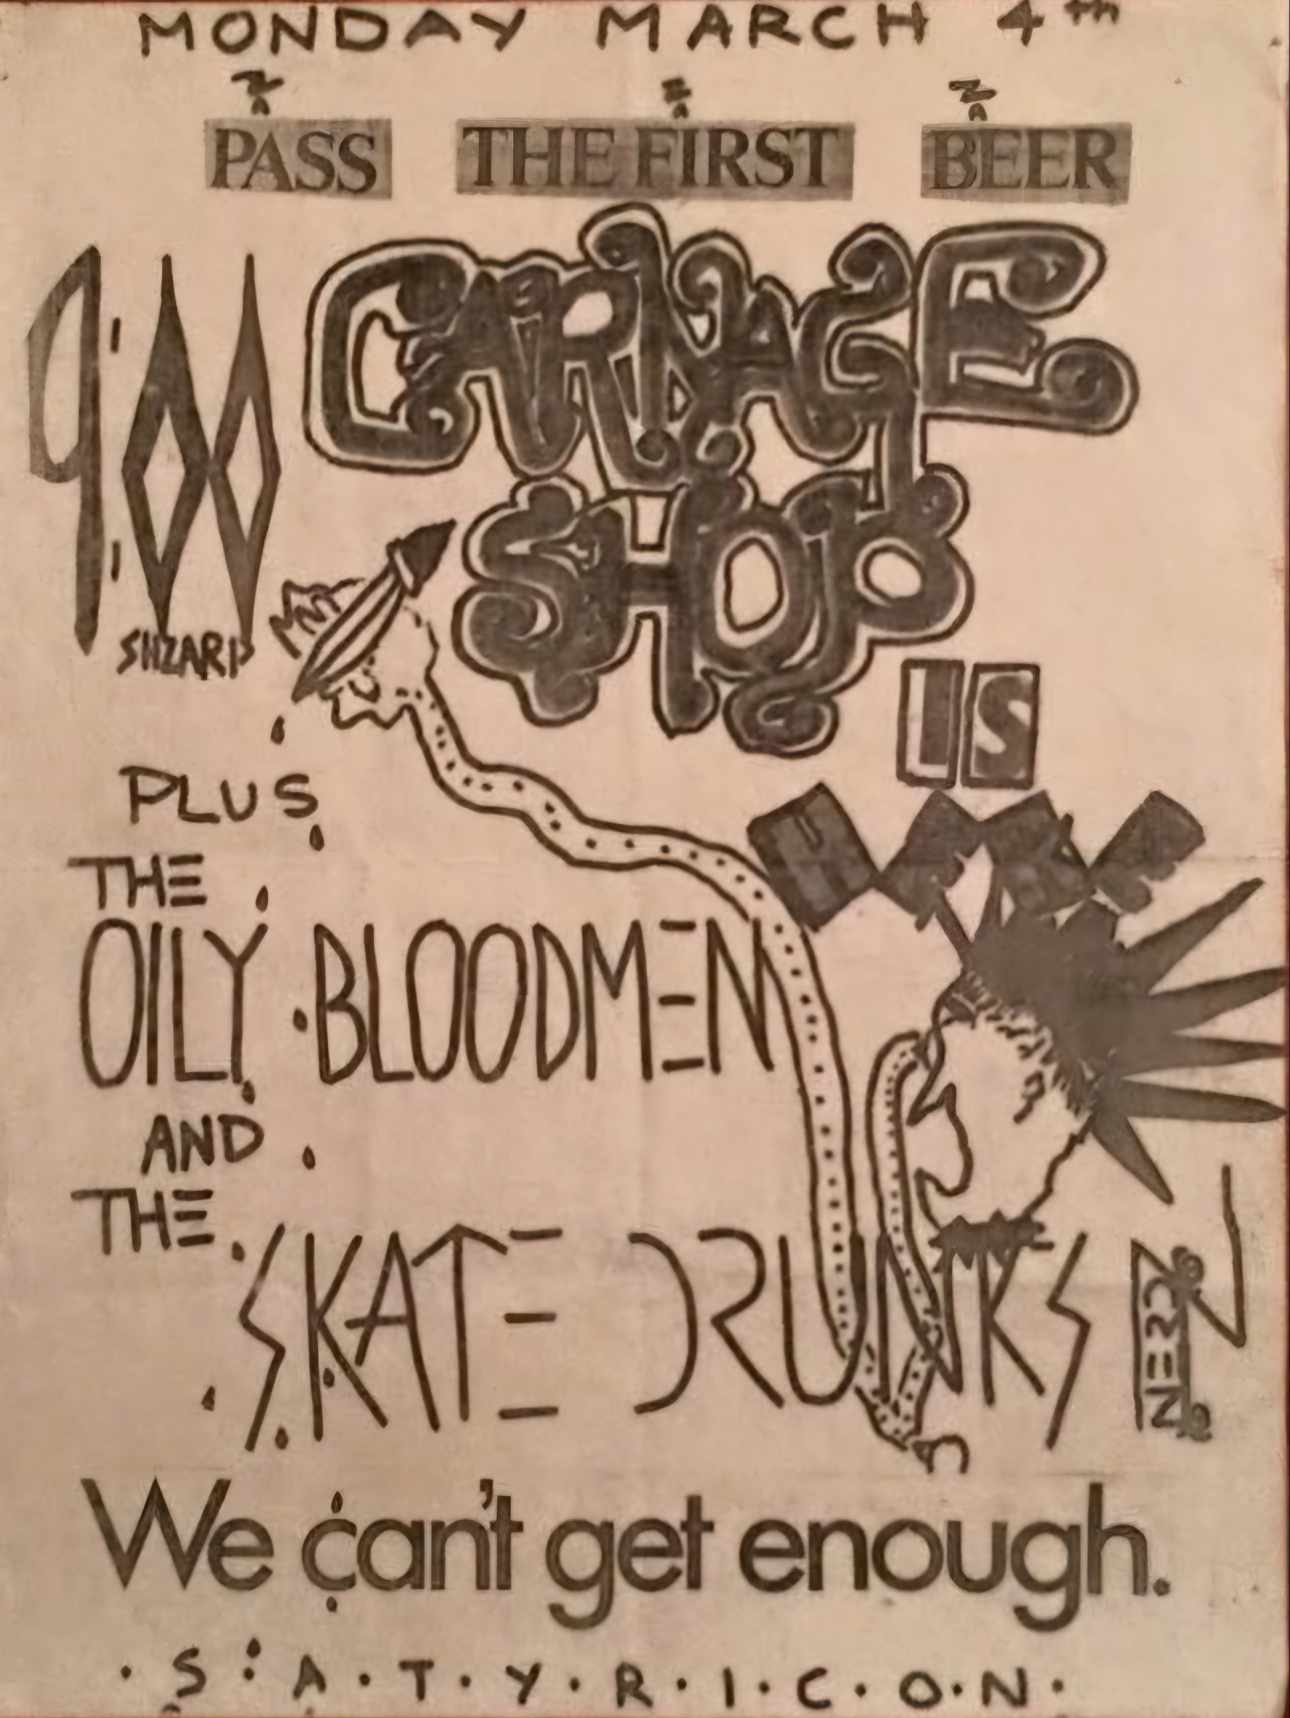 MONDAY MARCH 4th
PASS THE FIRST BEER
9:00
CARNAGE
SHOP
IS
HERE
PLUS
THE
OILY BLOODMEN
AND
THE
SKATE DRUNKS
We can't get enough.
·S·A·T·Y·R·I·C·O·N·